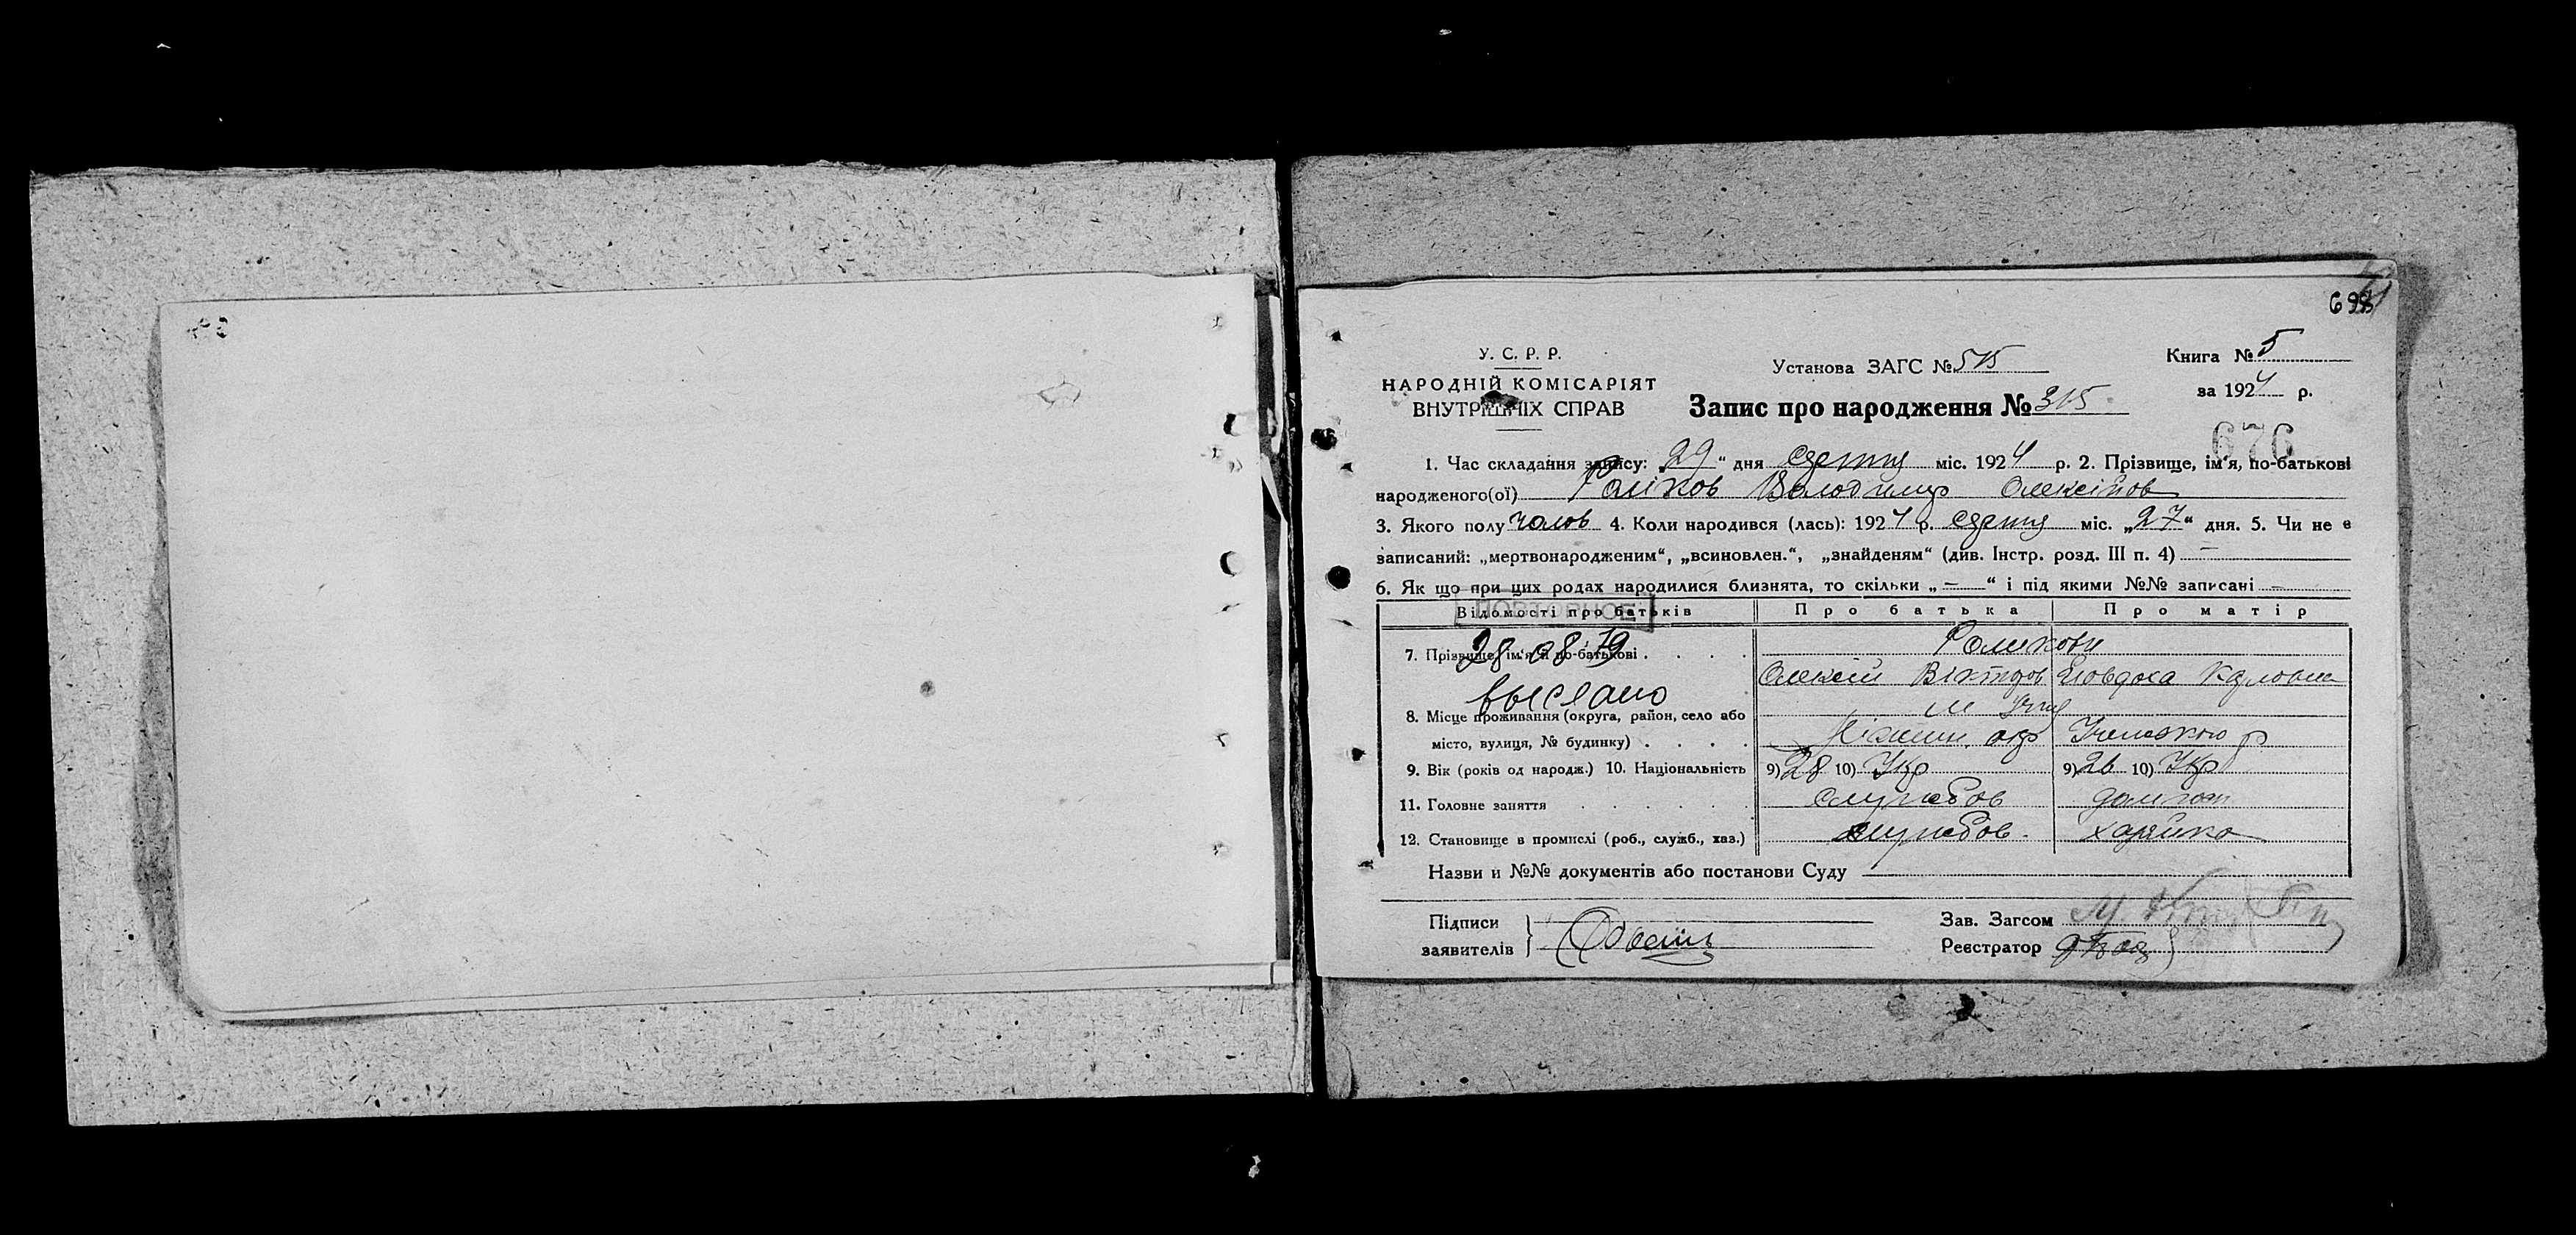 698
У. С. Р. Р.
НАРОДНІЙ КОМІСАРІЯТ
ВНУТРІШНІХ СПРАВ
Установа ЗАГС № 515
Запис про народження № 315
Книга № 5
за 1924 р.
676
1. Час складання запису: „29“ дня серпня міс. 1924 р. 2. Прізвище, ім'я, по-батькові
народженого(ої) Роліков Володимир Олексійов
3. Якого полу чолов 4. Коли народився (лась): 1924 р. серпня міс. „27“ дня. 5. Чи не є
записаний: „мертвонародженим“, „всиновлен.“, „знайденям“ (див. Інстр. розд. III п. 4) —
6. Як що при цих родах народилися близнята, то скільки „—“ і під якими №№ записані —
Відомості про батьків Про батька Про матір
7. Прізвище, ім'я й по-батькові Роликови
28 08 79
Олексій Вікторов Євдоха Карловна
выслано
8. Місце проживання (округа, район, село або м Ічня
місто, вулиця, № будинку) Ніжин. окр Іченського р
9. Вік (років од народж.) 10. Національність 9) 28 10) Укр 9) 26 10) Укр
11. Головне заняття службов дом госп
12. Становище в промислі (роб., служб., хаз.) службов. хазяйка
Назви й №№ документів або постанови Суду
Підписи
заявителів
Зав. Загсом
Реєстратор